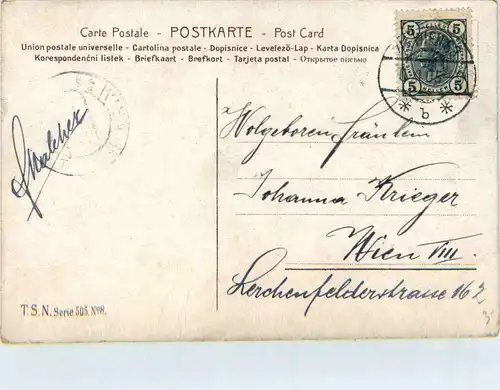 Carte Postale - POSTKARTE - Post Card
Union postale universelle - Cartolina postale - Dopisnice - Levelező-Lap - Karta Dopisnica
Korespondenční lístek - Briefkaart - Brefkort - Tarjeta postal - Открытое письмо
5 5
5 5
* b *
Wolgeboren Fräulein
Johanna Krieger
Wien VIII.
Lerchenfelderstrasse 162
T.S.N. Serie 505. No 8.